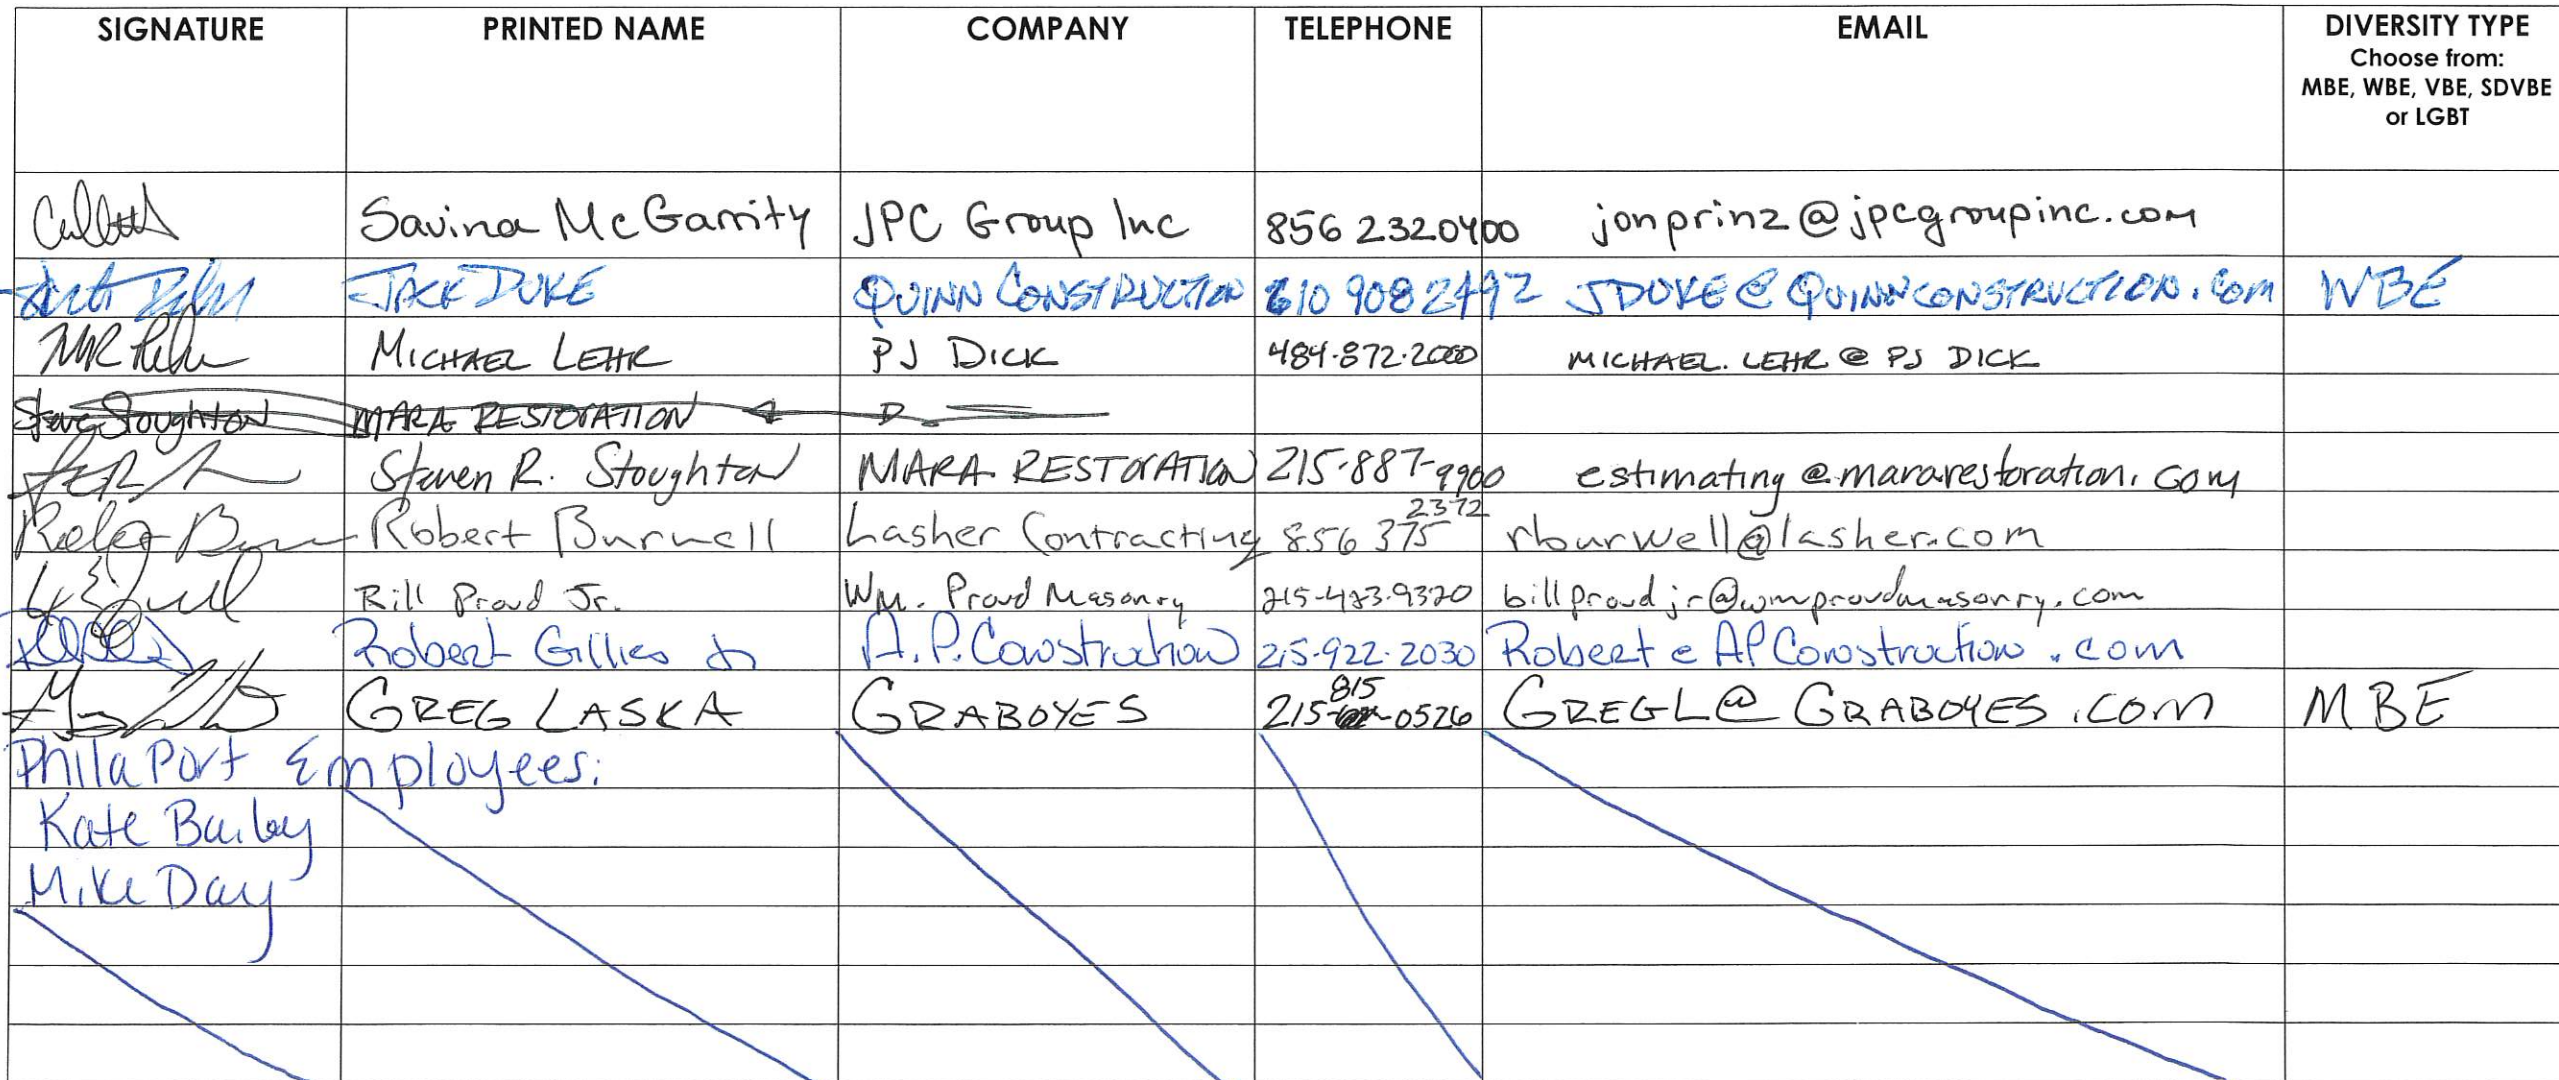 SIGNATURE PRINTED NAME COMPANY TELEPHONE EMAIL DIVERSITY TYPE
Choose from:
MBE, WBE, VBE, SDVBE
or LGBT
Savina McGarrity JPC Group Inc 856 2320400 jonprinz@jpcgroupinc.com
JACK DUKE QUINN CONSTRUCTION 610 908 2492 JDUKE@QUINNCONSTRUCTION.COM WBE
MICHAEL LEHR PJ DICK 484-872-2000 MICHAEL.LEHR @ PJ DICK
Steve Stoughton MARA RESTORATION
Steven R. Stoughton MARA RESTORATION 215-887-9900 estimating@mararestoration.com
Robert Burwell Lasher Contracting 856 375 2372 rburwell@lasher.com
Bill Proud Jr. Wm. Proud Masonry 215-423-9320 billproudjr@wmproudmasonry.com
Robert Gillies Jr A.P. Construction 215-922-2030 Robert@APConstruction.com
GREG LASKA GRABOYES 215-815-0526 GREGL@GRABOYES.COM MBE
PhilaPort Employees:
Kate Bailey
Mike Day